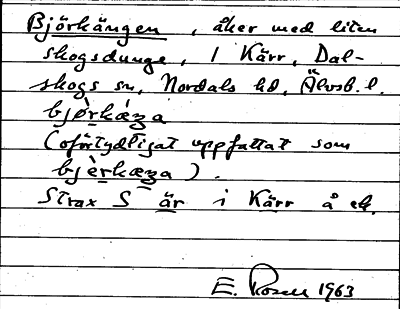 Björkängen, åker med liten
skogsdunge, / Kärr, Dal-
skogs sn, Nordals hd, Älvsb. l.
bjø̀rkæŋa
(oförtydligat uppfattat som
bjè̱rkæŋa).
Strax S är i Kärr å ek.
E. Rosell 1963